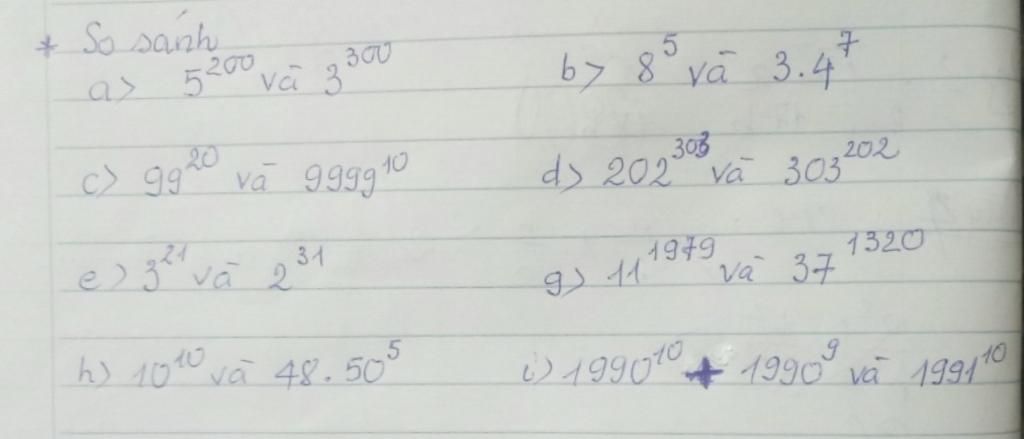 * So sánh
a> 5^200 và 3^300 b> 8^5 và 3.4^7
c) 99^20 và 9999^10 d> 202^303 và 303^202
e) 3^21 và 2^31 g) 11^1979 và 37^1320
h) 10^10 và 48.50^5 i) 1990^10 + 1990^9 và 1991^10